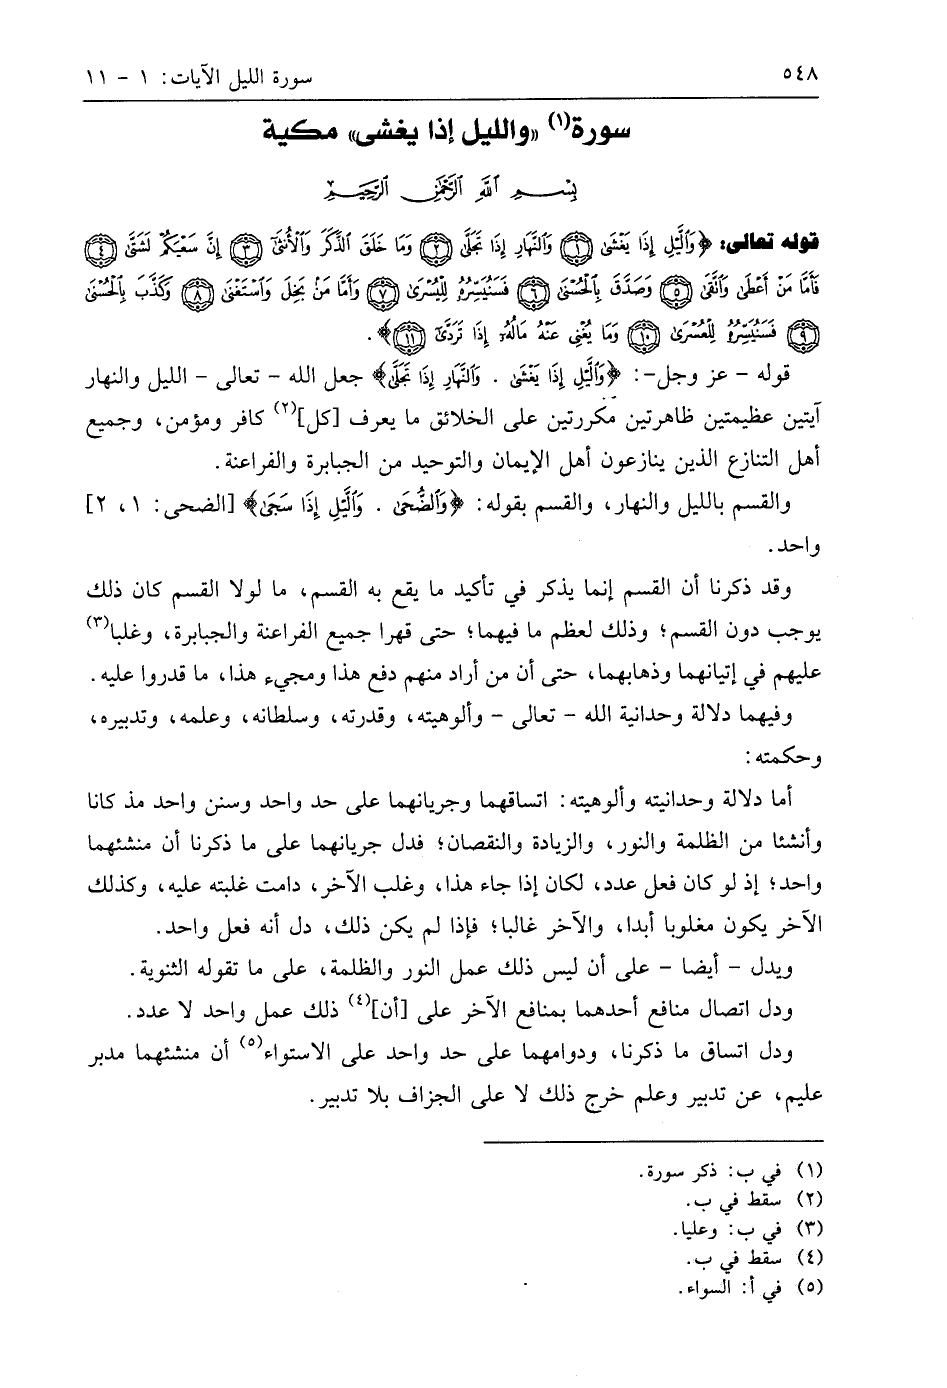 ٥٤٨ سورة الليل الآيات: ١ - ١١
سورة(١) «والليل إذا يغشى» مكية
بِسْمِ اللَّهِ الرَّحْمَٰنِ الرَّحِيمِ
قوله تعالى: ﴿وَٱلَّيْلِ إِذَا يَغْشَىٰ ١ وَٱلنَّهَارِ إِذَا تَجَلَّىٰ ٢ وَمَا خَلَقَ ٱلذَّكَرَ وَٱلْأُنثَىٰٓ ٣ إِنَّ سَعْيَكُمْ لَشَتَّىٰ ٤
فَأَمَّا مَنْ أَعْطَىٰ وَٱتَّقَىٰ ٥ وَصَدَّقَ بِٱلْحُسْنَىٰ ٦ فَسَنُيَسِّرُهُۥ لِلْيُسْرَىٰ ٧ وَأَمَّا مَنۢ بَخِلَ وَٱسْتَغْنَىٰ ٨ وَكَذَّبَ بِٱلْحُسْنَىٰ
٩ فَسَنُيَسِّرُهُۥ لِلْعُسْرَىٰ ١٠ وَمَا يُغْنِى عَنْهُ مَالُهُۥٓ إِذَا تَرَدَّىٰٓ ١١﴾.
قوله - عز وجل-: ﴿وَٱلَّيْلِ إِذَا يَغْشَىٰ . وَٱلنَّهَارِ إِذَا تَجَلَّىٰ﴾ جعل الله - تعالى - الليل والنهار
آيتين عظيمتين ظاهرتين مكررتين على الخلائق ما يعرف [كل](٢) كافر ومؤمن، وجميع
أهل التنازع الذين ينازعون أهل الإيمان والتوحيد من الجبابرة والفراعنة.
والقسم بالليل والنهار، والقسم بقوله: ﴿وَٱلضُّحَىٰ . وَٱلَّيْلِ إِذَا سَجَىٰ﴾ [الضحى: ١، ٢]
واحد.
وقد ذكرنا أن القسم إنما يذكر في تأكيد ما يقع به القسم، ما لولا القسم كان ذلك
يوجب دون القسم؛ وذلك لعظم ما فيهما؛ حتى قهرا جميع الفراعنة والجبابرة، وغلبا(٣)
عليهم في إتيانهما وذهابهما، حتى أن من أراد منهم دفع هذا ومجيء هذا، ما قدروا عليه.
وفيهما دلالة وحدانية الله - تعالى - وألوهيته، وقدرته، وسلطانه، وعلمه، وتدبيره،
وحكمته:
أما دلالة وحدانيته وألوهيته: اتساقهما وجريانهما على حد واحد وسنن واحد مذ كانا
وأنشئا من الظلمة والنور، والزيادة والنقصان؛ فدل جريانهما على ما ذكرنا أن منشئهما
واحد؛ إذ لو كان فعل عدد، لكان إذا جاء هذا، وغلب الآخر، دامت غلبته عليه، وكذلك
الآخر يكون مغلوبا أبدا، والآخر غالبا؛ فإذا لم يكن ذلك، دل أنه فعل واحد.
ويدل - أيضا - على أن ليس ذلك عمل النور والظلمة، على ما تقوله الثنوية.
ودل اتصال منافع أحدهما بمنافع الآخر على [أن](٤) ذلك عمل واحد لا عدد.
ودل اتساق ما ذكرنا، ودوامهما على حد واحد على الاستواء(٥) أن منشئهما مدبر
عليم، عن تدبير وعلم خرج ذلك لا على الجزاف بلا تدبير.
(١) في ب: ذكر سورة.
(٢) سقط في ب.
(٣) في ب: وعليا.
(٤) سقط في ب.
(٥) في أ: السواء.